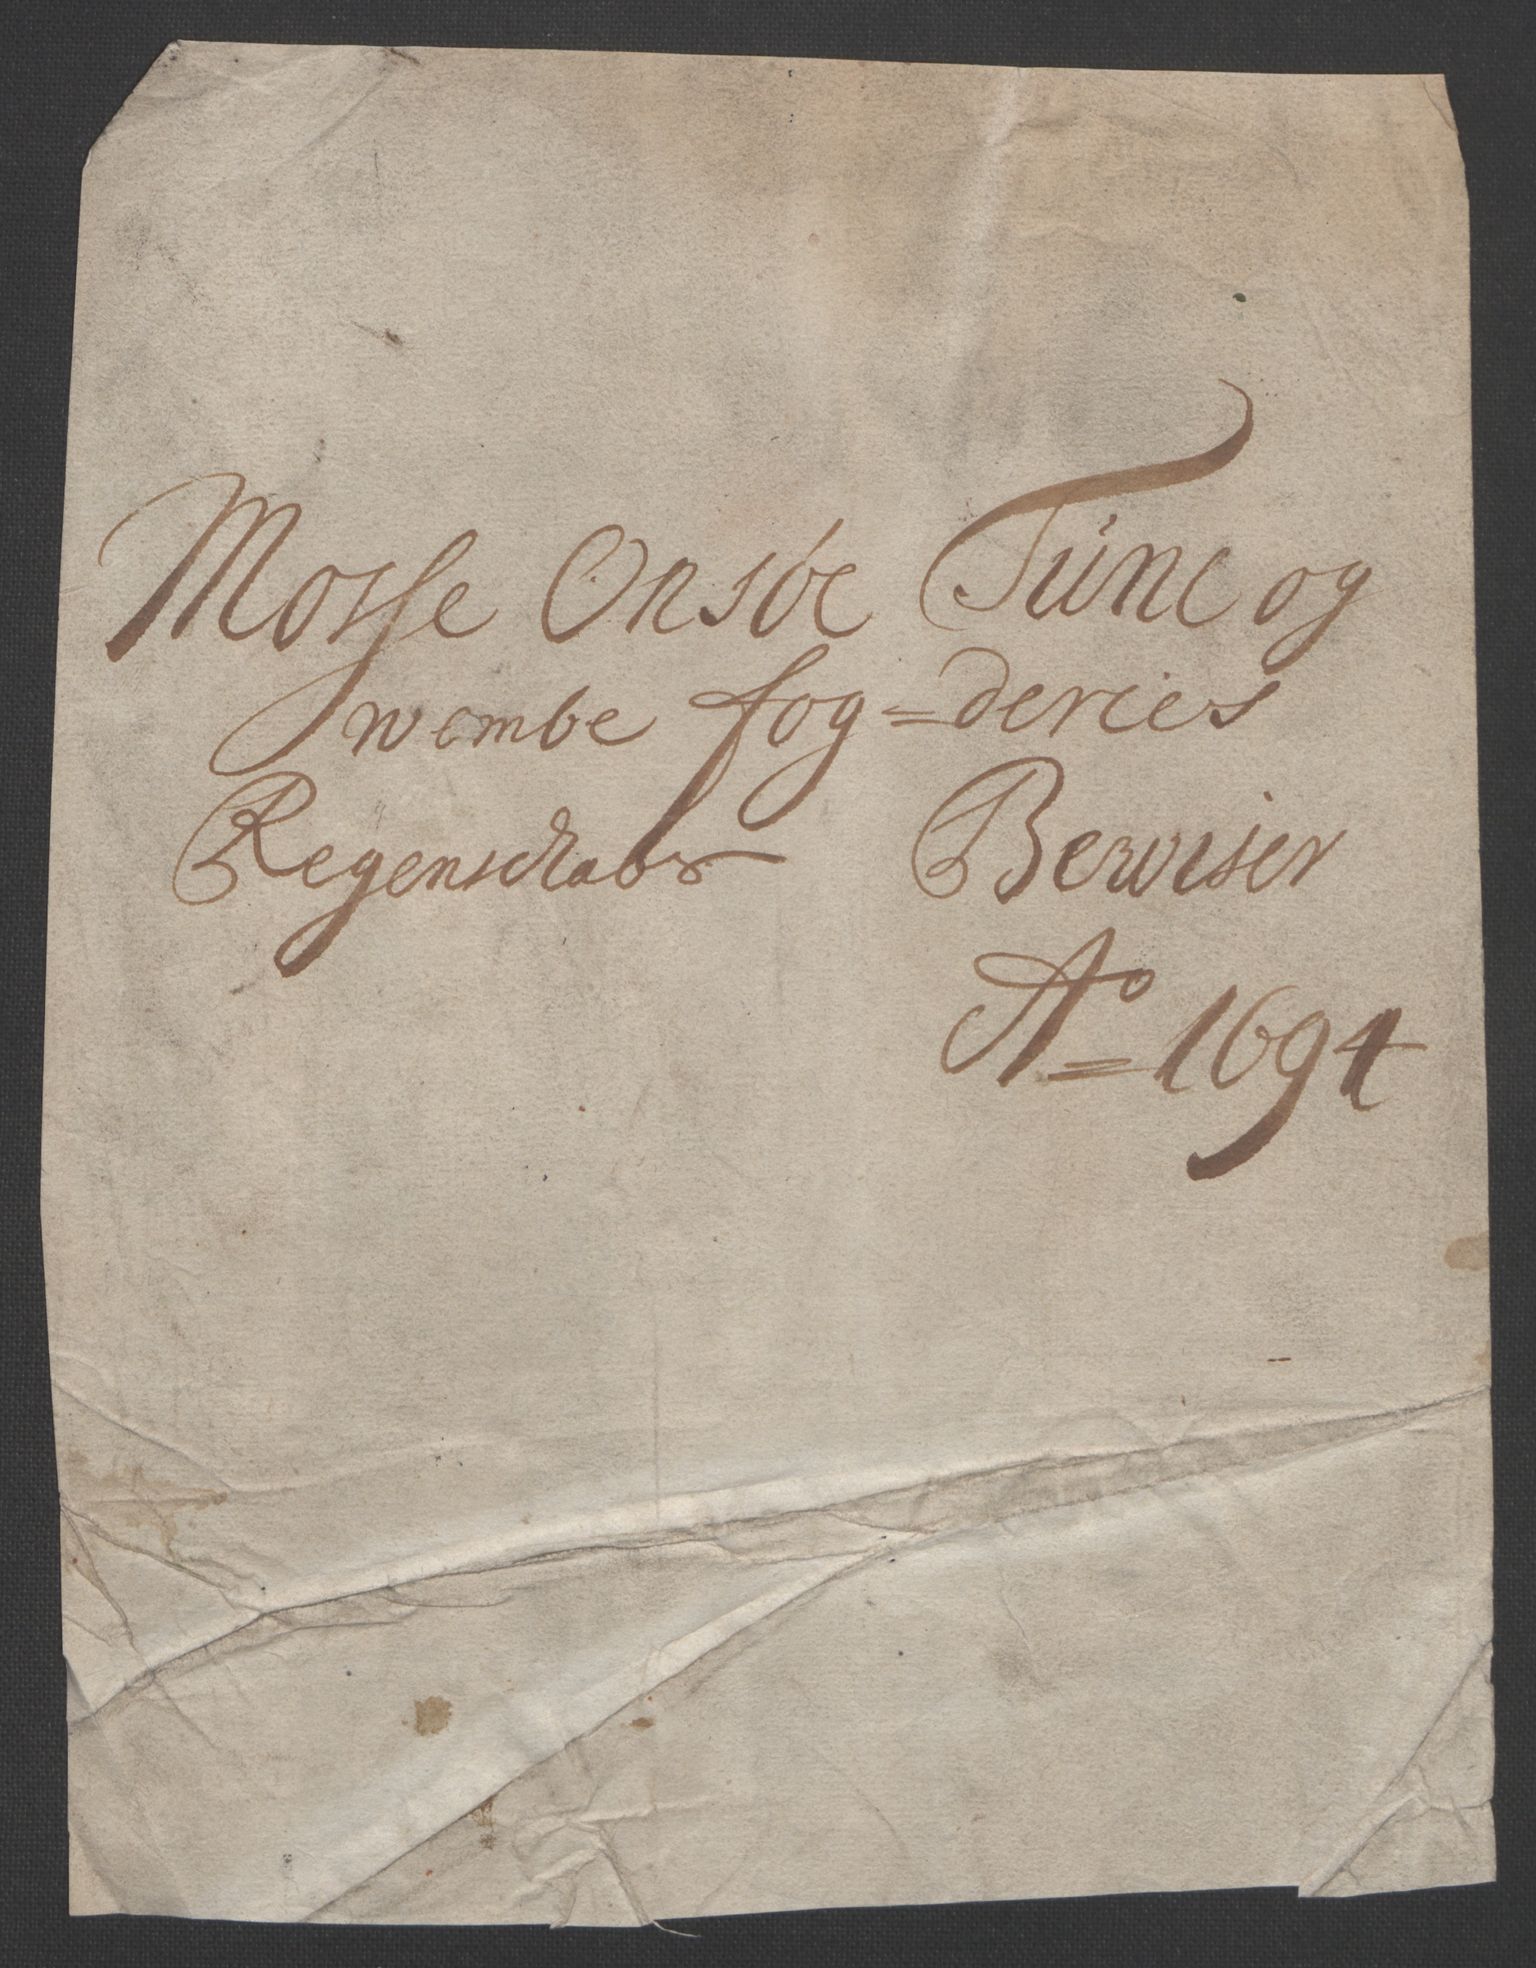 Mosse Onsöe Tüne og
wembe fog=deries
Regenschabs Bewiser
Ao 1694